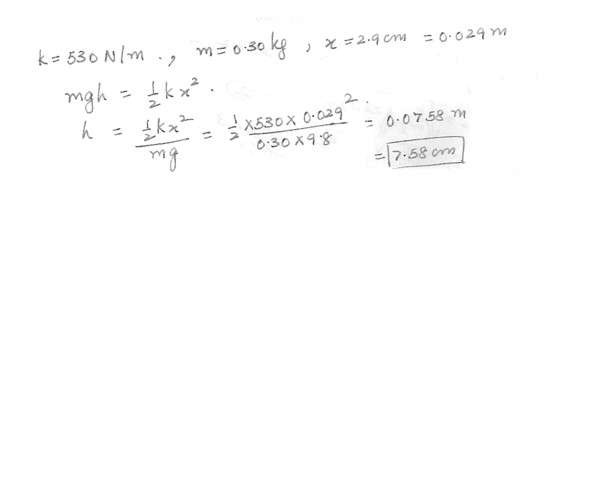 k = 530 N/m ., m = 0.30 kg , x = 2.9 cm = 0.029 m
mgh = ½ k x² .
h = ½kx² / mg = ½ × 530 × 0.029² / 0.30 × 9.8 = 0.0758 m
= 7.58 cm